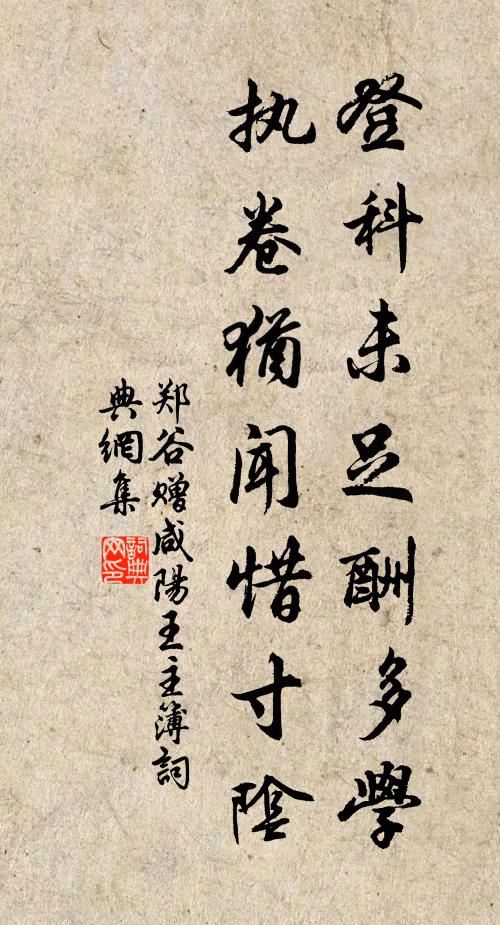 登科未足酬多學
执卷猶闻惜寸陰
郑谷赠咸陽王主簿詞
典網集
詞典
网印